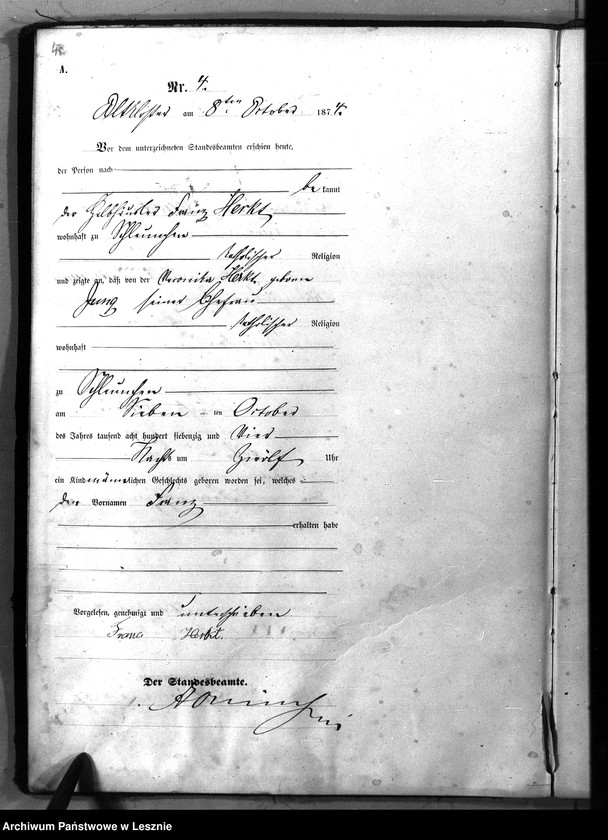 A.
Nr. 4.
Altkloster am 8ten October 1874.
Vor dem unterzeichneten Standesbeamten erschien heute,
der Person nach
bekannt
der Franz Herkt
wohnhaft zu
katholischer Religion
und zeigte an, daß von der Veronika Herkt geborene
Jung seiner Ehefrau
katholischer Religion
wohnhaft
zu
am Sieben ten October
des Jahres tausend acht hundert siebenzig und Vier
Nachts um Zwölf Uhr
ein Kind männlichen Geschlechts geboren worden sei, welches
den Vornamen Franz
erhalten habe
Vorgelesen, genehmigt und unterschrieben
Franz Herkt.
Der Standesbeamte.
Archiwum Państwowe w Lesznie